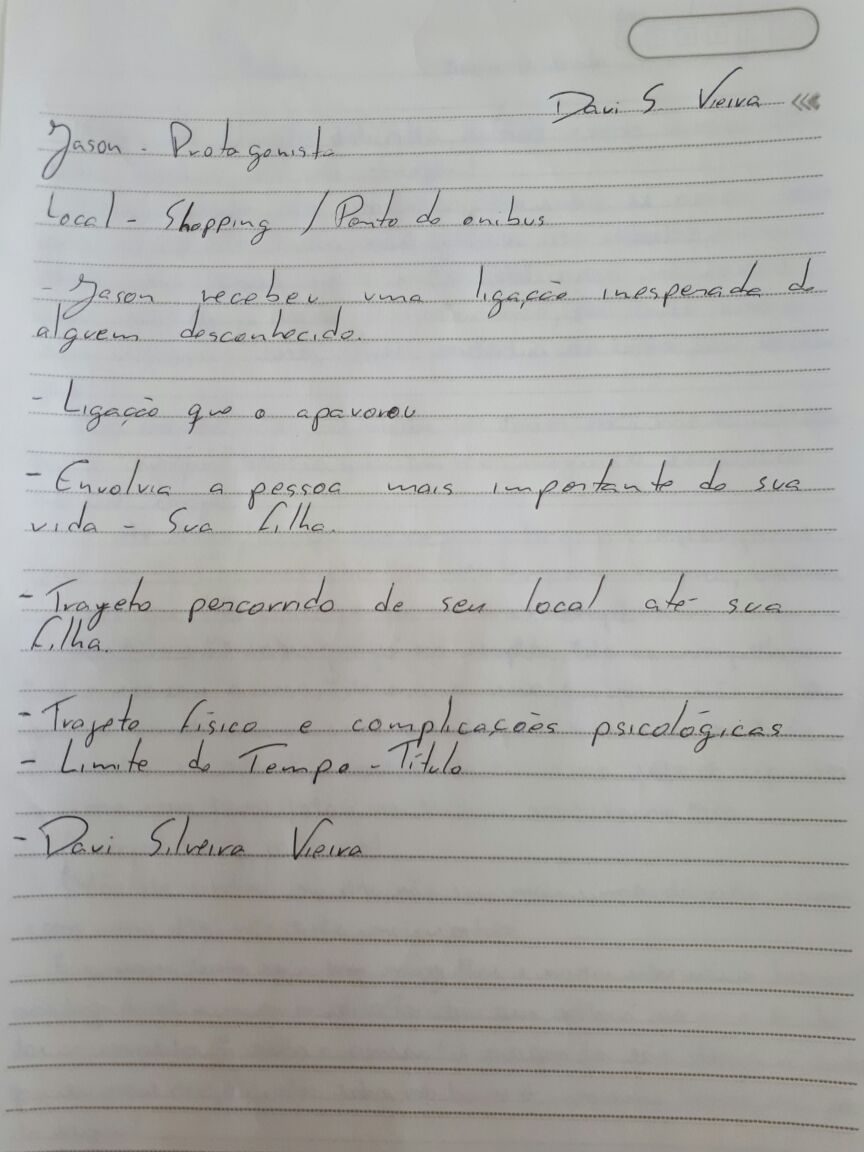 Davi S Vieira
Jason - Protagonista
Local - Shopping / Ponto de onibus
- Jason recebeu uma ligação inesperada de
alguem desconhecido.
- Ligação que o apavorou
- Envolvia a pessoa mais importante de sua
vida - Sua filha.
- Trajeto percorrido de seu local até sua
filha.
- Trajeto físico e complicações psicológicas
- Limite do Tempo - Título
- Davi Silveira Vieira